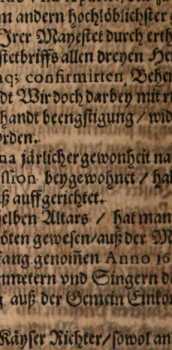 m andern hochlöblichster
Irer Mayestet durch erth
stetbriffs allen dreyen He
aqȝ confirmirten, Behen
dt Wir doch darbey mit r
handt beengstigung / wid
orden.
na järlicher gewonheit na
ssion beygewohnet / hal
ß auffgerichtet.
elben Altars / hat man
öten gewesen / auß der M
fang genom̃en Anno 16
nmetern vnd Singern d
auß der Gemein Einko
Käyser Richter / sowol an